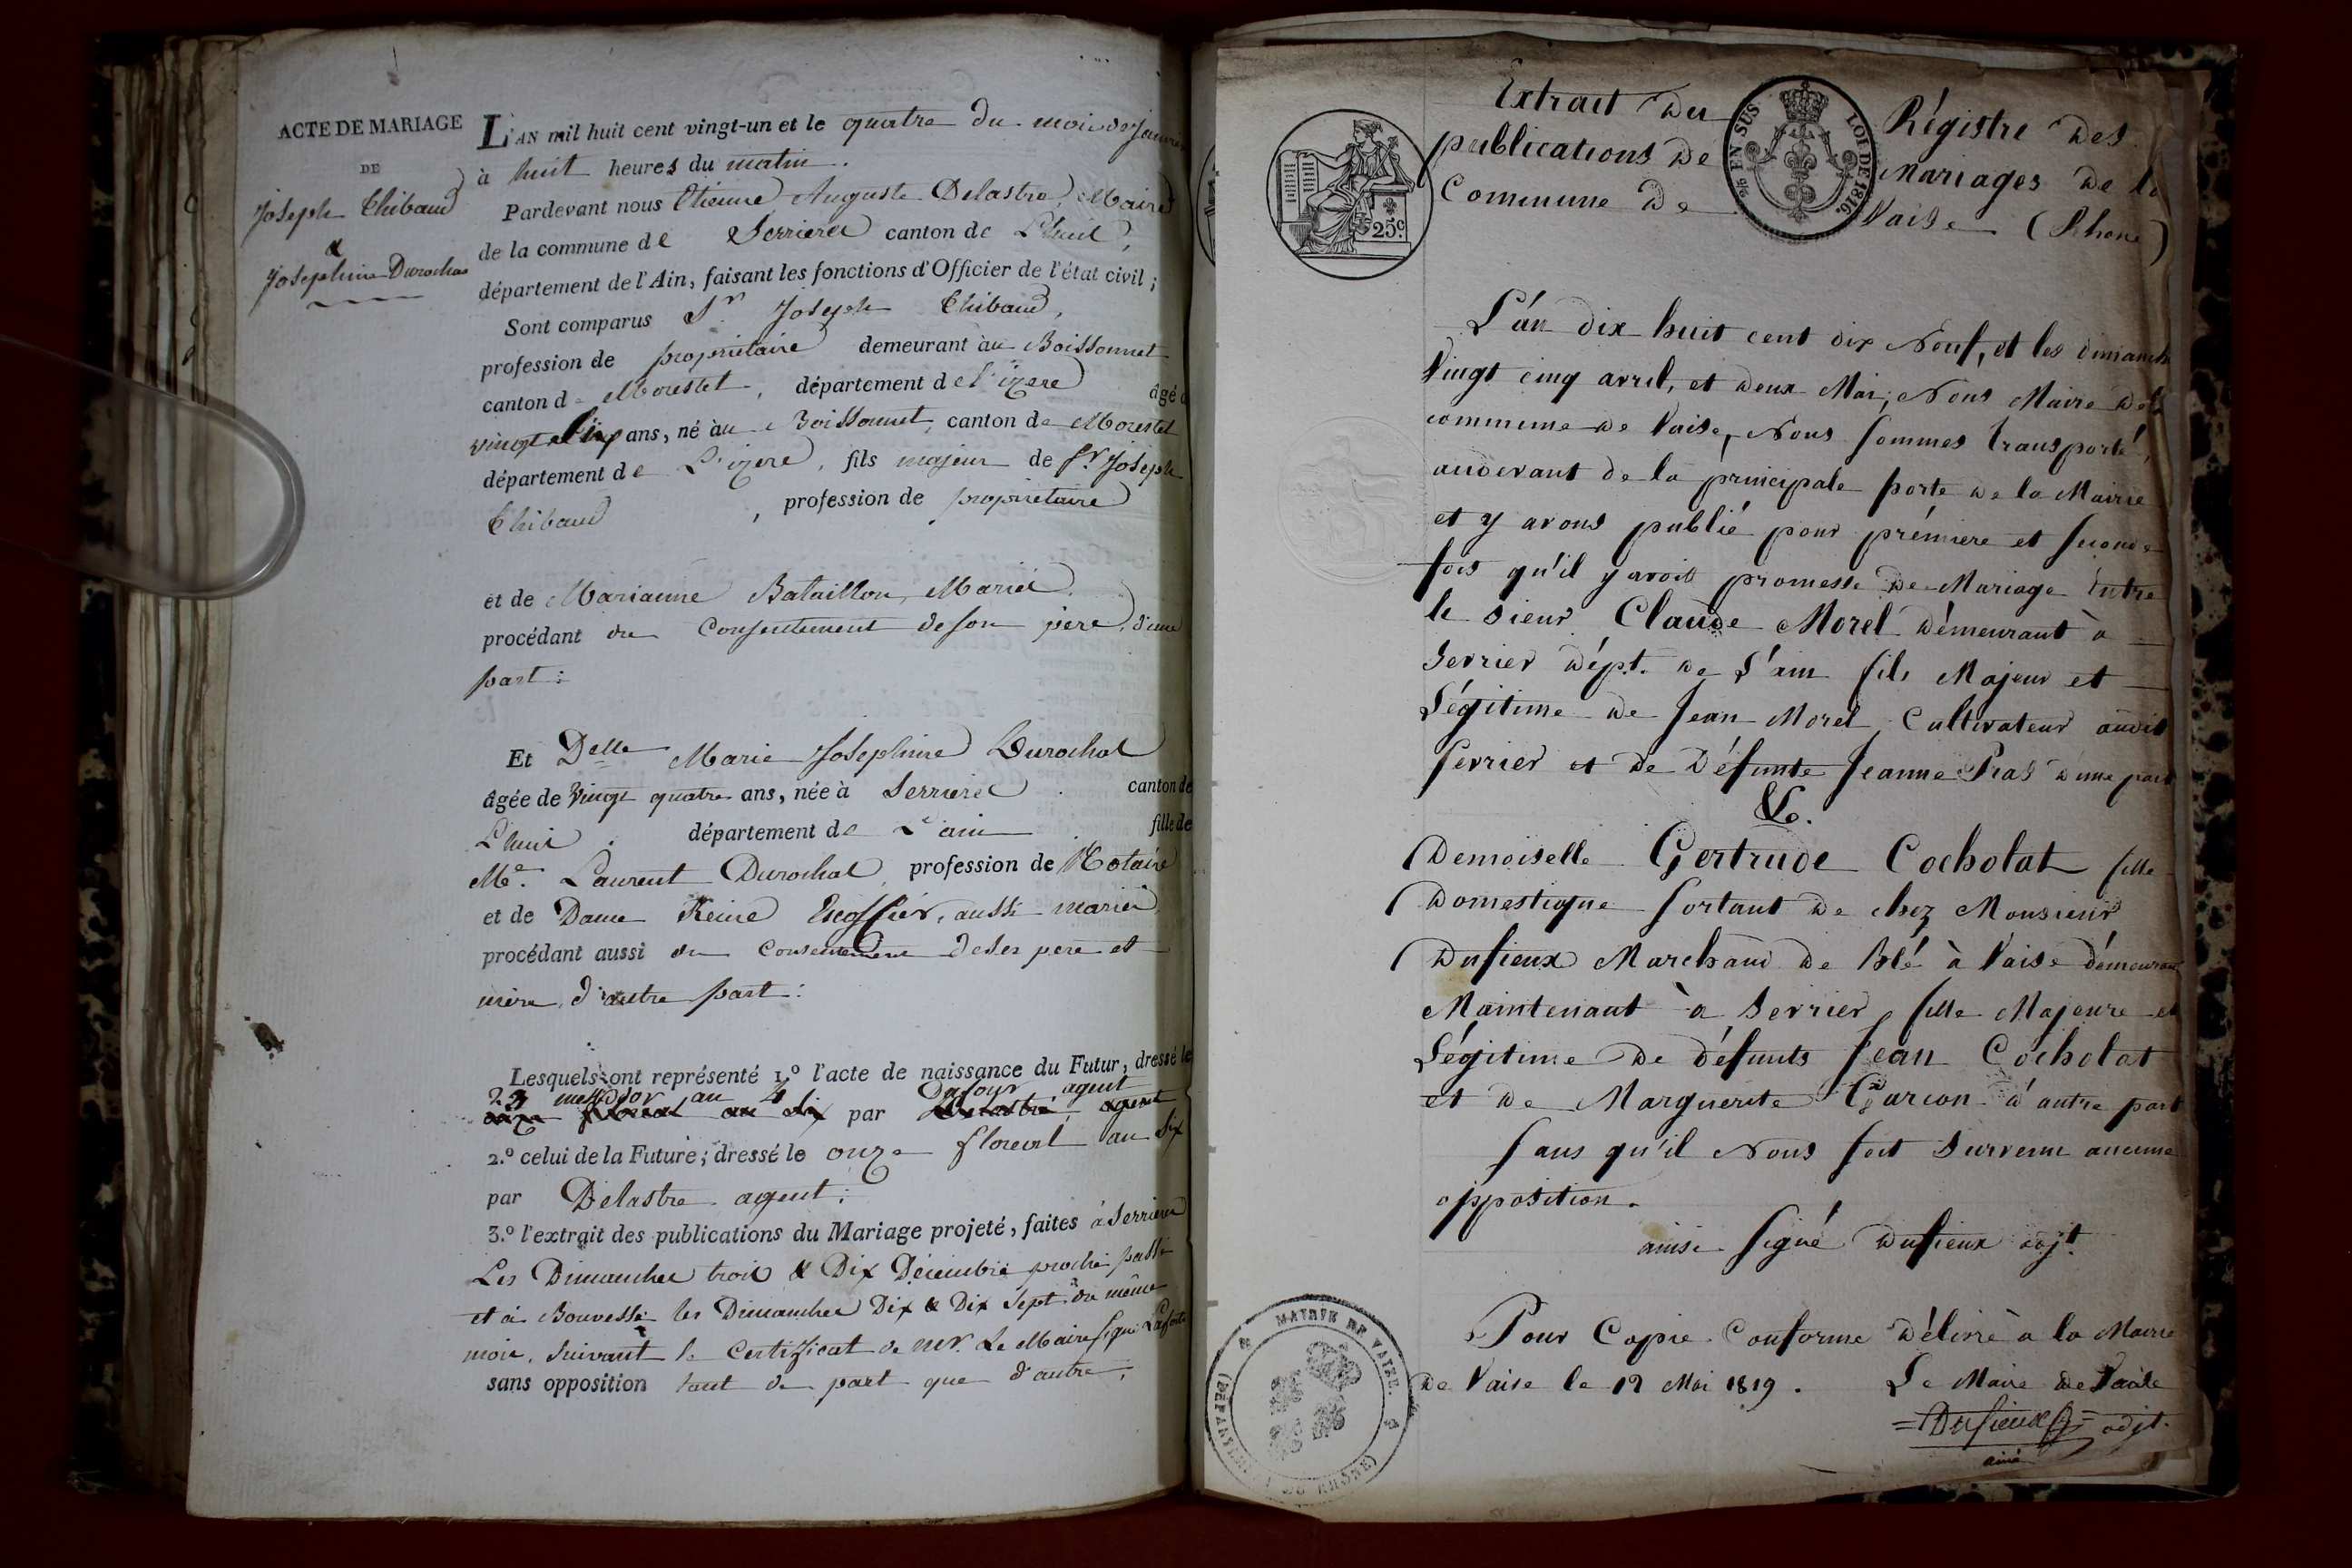 ACTE DE MARIAGE
DE
Joseph Thibaud
&
Josephine Durochat
L'AN mil huit cent vingt-un et le quatre du mois de Janvier
à huit heures du matin.
Pardevant nous Etienne Auguste Delastre, Maire
de la commune de Serrieres canton de L'huis,
département de l'Ain, faisant les fonctions d'Officier de l'état civil;
Sont comparus Sr. Joseph Thibaud,
profession de propriétaire demeurant au Boissonnet
canton de Morestel, département de l'izere âgé d
vingt cinq ans, né au Boissonnet, canton de Morestel
département de L'izere, fils majeur de Sr. Joseph
Thibaud, profession de propriétaire
et de Marianne Bataillon, Mariés.
procédant du Consentement de son père, d'une
part:
Et Delle Marie Josephine Durochat
âgée de vingt quatre ans, née à Serrieres canton de
L'huis. département de L'ain fille de
Me. Laurent Durochat, profession de Notaire
et de Dame Reine Escoffier, aussi mariés,
procédant aussi du Consentement de ses pere et
mère, d'autre part:
Lesquels ont représenté 1.º l'acte de naissance du Futur, dressé le
23 messidor an 4 Dufour agent
onze floréal an six par Delastre, agent
2.º celui de la Future; dressé le onze floreal an six
par Delastre agent;
3.º l'extrait des publications du Mariage projeté, faites à Serrieres
Les Dimanches trois & Dix Décembre proche passé
et à Bouvesse les Dimanches Dix & Dix Sept du même
mois, Suivant le Certificat de mr. Le Maire signé
sans opposition tant de part que d'autre;
Extrait du Régistre des
publications de Mariages de la
Commune de Vaise (Rhone)
EN SUS
LOI DE 1816.
25c.
L'án dix huit cent dix Neuf, et les dimanch
Vingt cinq avril, et deux Mai, Nous Maire de la
commune de Vaise, Nous sommes transporté
audevant de la principale porte de la Mairie
et y avons publié pour prémiere et seconde
fois qu'il y avoit promesse de Mariage Entre
le sieur Claude Morel démeurant à
Serrier dépt. de L'ain fils Majeur et
Légitime de Jean Morel Cultivateur audit
Serrier et de Défunte Jeanne Pras d'une part
&.
Demoiselle Gertrude Cocholat fille
Domestique sortant de chez Monsieur
Dusieux Marchand de blé à Vaise démeurant
Maintenant à Serrier, fille Majeure et
Légitime de défunts Jean Cocholat
et de Marguerite Garcon d'autre part
sans qu'il Nous soit survenu aucune
opposition.
ainsi signé Dusieux adjt.
Pour Copie Conforme Délivré à la Mairie
de Vaise le 12 Mai 1819. Le Maire de Vaise
Dusieux adjt.
ainé
MAIRIE DE VAISE.
(DÉPARTEMENT DU RHÔNE)